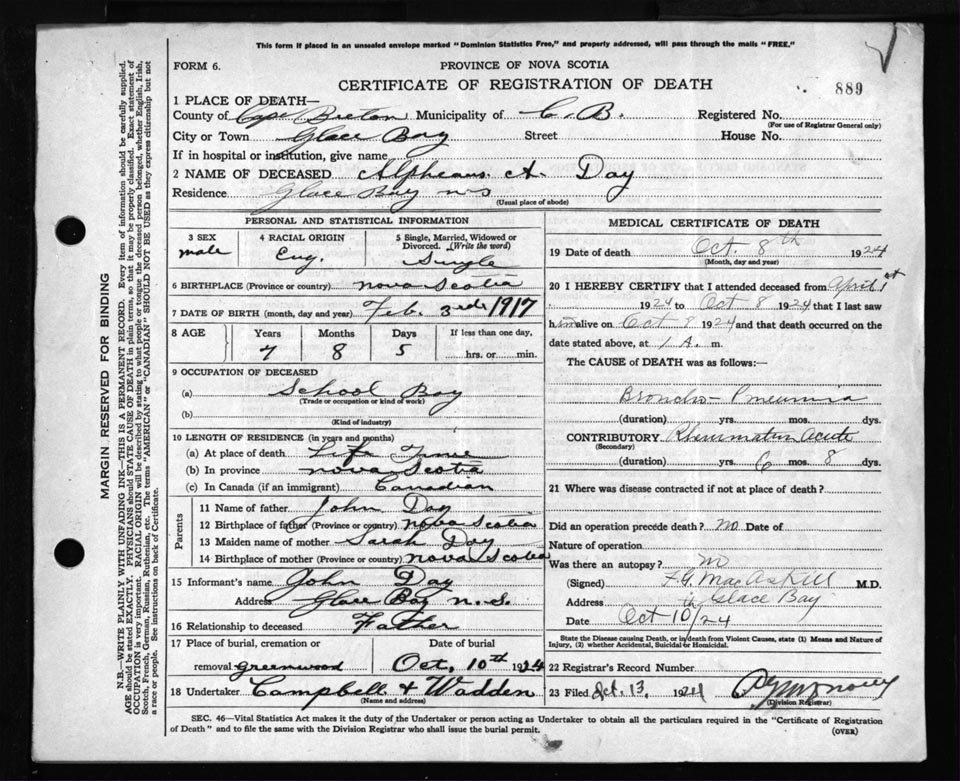 This form if placed in an unsealed envelope marked "Dominion Statistics Free," and properly addressed, will pass through the mails "FREE."
FORM 6. PROVINCE OF NOVA SCOTIA
CERTIFICATE OF REGISTRATION OF DEATH 889
1 PLACE OF DEATH—
County of Cape Breton Municipality of C.B. Registered No.
(For use of Registrar General only)
City or Town Glace Bay Street House No.
If in hospital or institution, give name
2 NAME OF DECEASED Alpheaus A. Day
Residence Glace Bay n s
(Usual place of abode)
PERSONAL AND STATISTICAL INFORMATION
3 SEX 4 RACIAL ORIGIN 5 Single, Married, Widowed or Divorced. (Write the word)
male Eng. Single
6 BIRTHPLACE (Province or country) nova Scotia
7 DATE OF BIRTH (month, day and year) Feb. 3rd 1917
8 AGE Years Months Days If less than one day,
7 8 5 hrs. or min.
9 OCCUPATION OF DECEASED
(a) School Boy
(Trade or occupation or kind of work)
(b)
(Kind of industry)
10 LENGTH OF RESIDENCE (in years and months)
(a) At place of death Life Time
(b) In province nova Scotia
(c) In Canada (if an immigrant) Canadian
Parents
11 Name of father John Day
12 Birthplace of father (Province or country) nova Scotia
13 Maiden name of mother Sarah Day
14 Birthplace of mother (Province or country) nova Scotia
15 Informant's name John Day
Address Glace Bay n.S.
16 Relationship to deceased Father
17 Place of burial, cremation or Date of burial
removal greenwood Oct, 10th 1924
18 Undertaker Campbell & Wadden
(Name and address)
MEDICAL CERTIFICATE OF DEATH
19 Date of death Oct. 8th 1924
(Month, day and year)
20 I HEREBY CERTIFY that I attended deceased from April 1st
1924 to Oct 8 1924 that I last saw
him alive on Oct 8 1924 and that death occurred on the
date stated above, at 1 A. m.
The CAUSE of DEATH was as follows:
Broncho-Pneumnia
(duration) yrs. mos. dys.
CONTRIBUTORY Rheumatism Acute
(Secondary)
(duration) yrs. 6 mos 8 dys.
21 Where was disease contracted if not at place of death?
Did an operation precede death? no Date of
Nature of operation
Was there an autopsy? no
(Signed) F.G. MacAskill M.D.
Address Glace Bay
Date Oct 10th/24
State the Disease causing Death, or in death from Violent Causes, state (1) Means and Nature of
Injury, (2) whether Accidental, Suicidal or Homicidal.
22 Registrar's Record Number
23 Filed Oct. 13, 1924
(Division Registrar)
SEC. 46—Vital Statistics Act makes it the duty of the Undertaker or person acting as Undertaker to obtain all the particulars required in the "Certificate of Registration
of Death" and to file the same with the Division Registrar who shall issue the burial permit. (OVER)
MARGIN RESERVED FOR BINDING
N.B.—WRITE PLAINLY WITH UNFADING INK—THIS IS A PERMANENT RECORD. Every item of information should be carefully supplied.
AGE should be stated EXACTLY. PHYSICIANS should STATE CAUSE OF DEATH in plain terms, so that it may be properly classified. Exact statement of
OCCUPATION is very important. RACIAL ORIGIN will be described by stating to what people or tongue the deceased person belonged, whether English, Irish,
Scotch, French, German, Russian, Ruthenian, etc. The terms "AMERICAN" or "CANADIAN" SHOULD NOT BE USED as they express citizenship but not
a race or people. See instructions on back of Certificate.